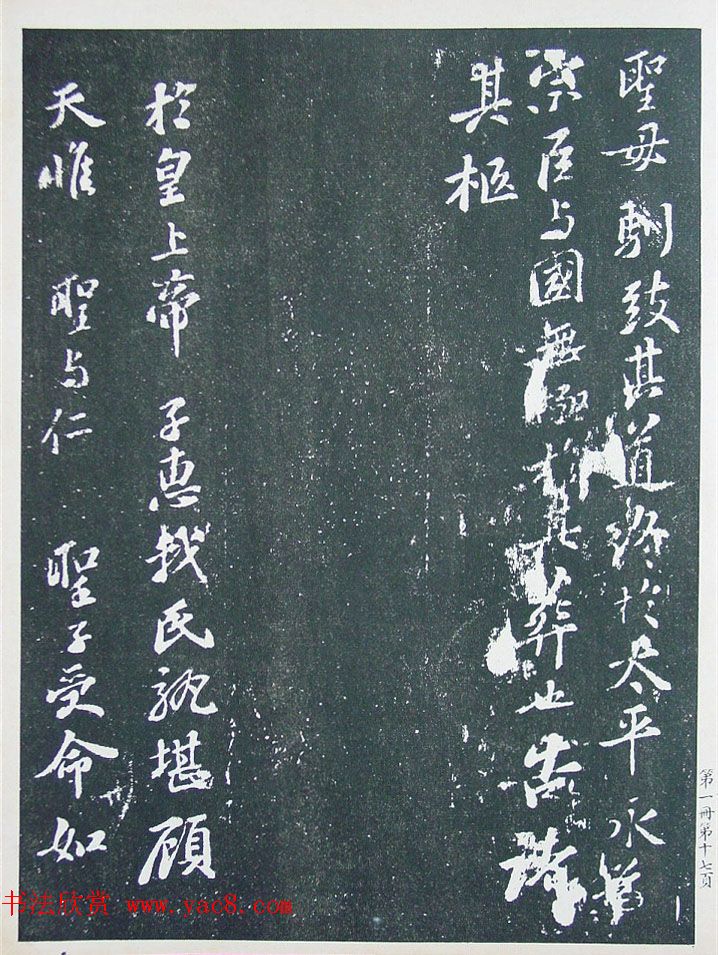 聖母 馴致其道終於太平永爲
宗臣与國無極於其葬也告諸
其柩
於皇上帝 子惠我民孰堪顧
天惟 聖与仁 聖子受命如
第一冊第十七頁
书法欣赏 www.yac8.com